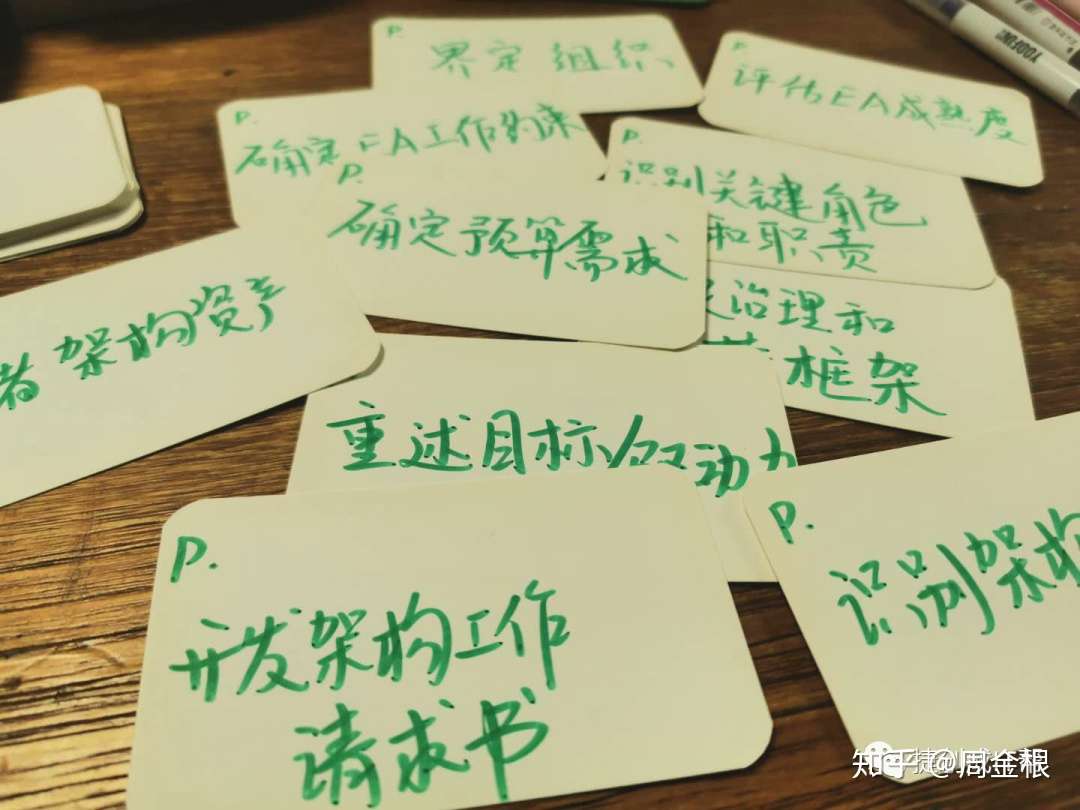 P.
界定组织
P.
评估EA成熟度
P.
确定EA工作约束
P.
识别关键角色
和职责
P.
确定预算需求
治理和
框架
者架构资产
重述目标和动力
P.
开发架构工作
请求书
P.
识别架构
YOOFUN
知乎 @周金根